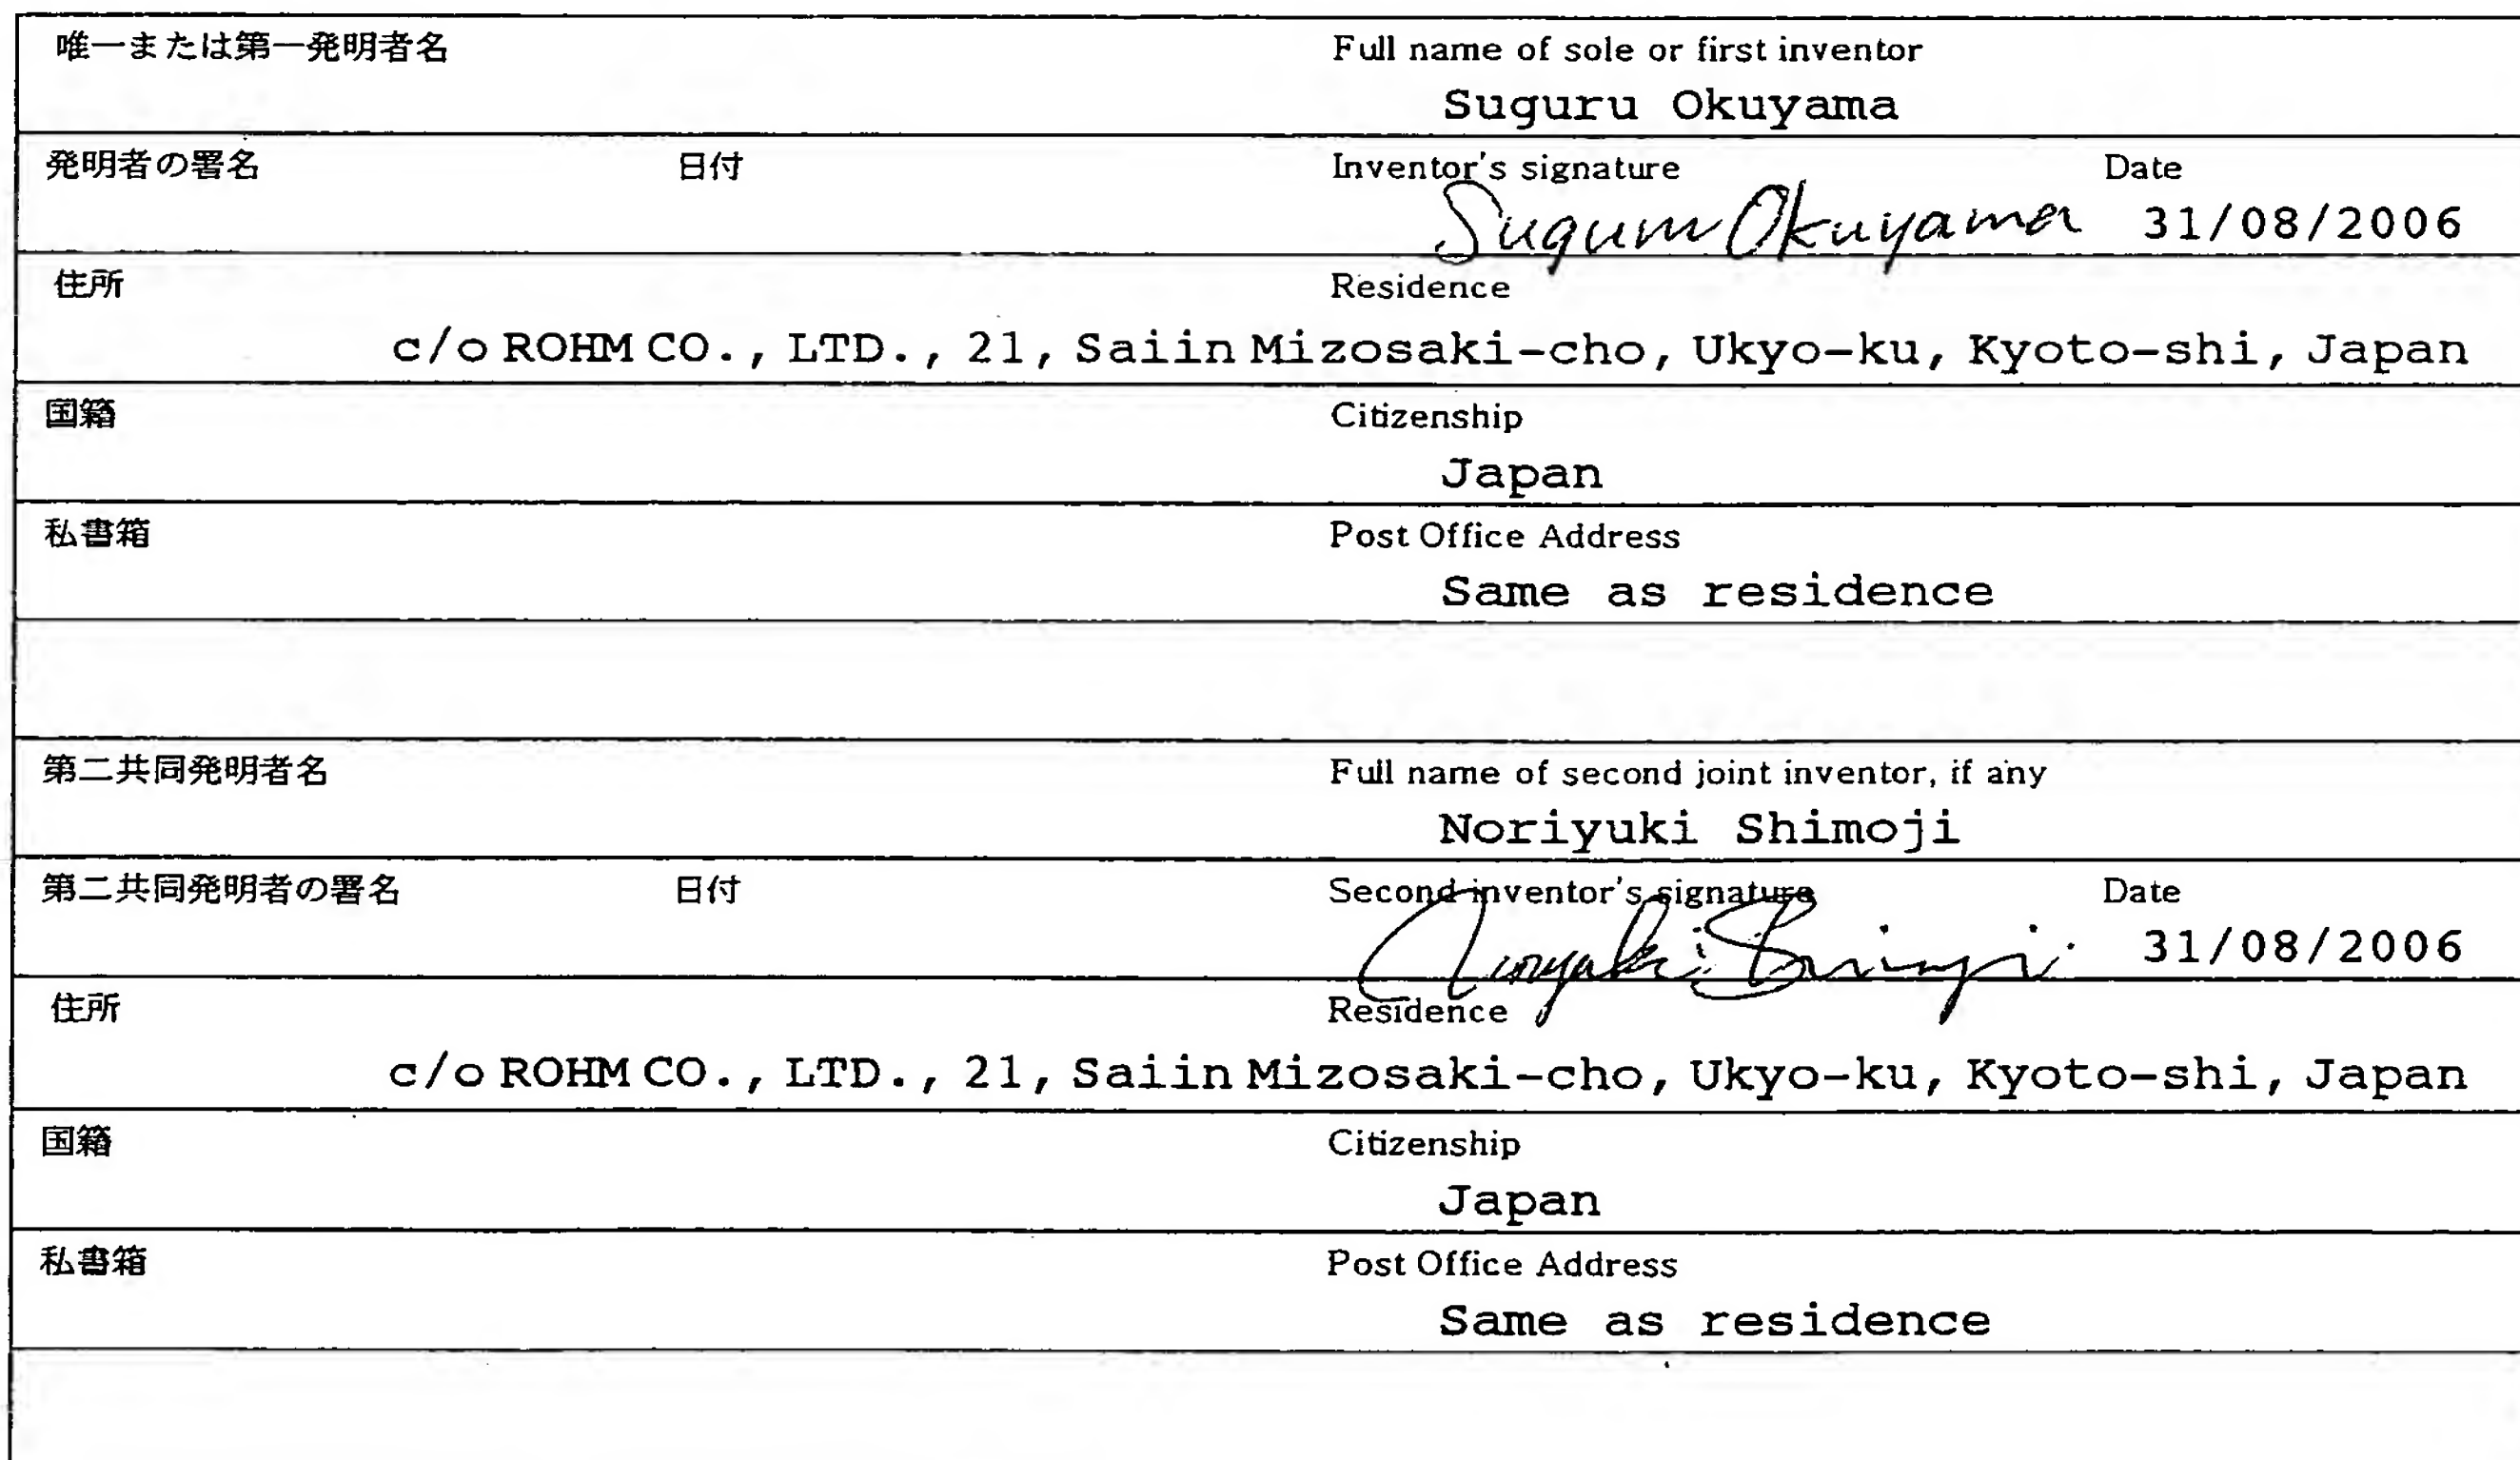 唯一または第一発明者名 Full name of sole or first inventor
Suguru Okuyama
発明者の署名 日付 Inventor's signature Date
Suguru Okuyama 31/08/2006
住所 Residence
c/o ROHM CO., LTD., 21, Saiin Mizosaki-cho, Ukyo-ku, Kyoto-shi, Japan
国籍 Citizenship
Japan
私書箱 Post Office Address
Same as residence
第二共同発明者名 Full name of second joint inventor, if any
Noriyuki Shimoji
第二共同発明者の署名 日付 Second inventor's signature Date
31/08/2006
住所 Residence
c/o ROHM CO., LTD., 21, Saiin Mizosaki-cho, Ukyo-ku, Kyoto-shi, Japan
国籍 Citizenship
Japan
私書箱 Post Office Address
Same as residence